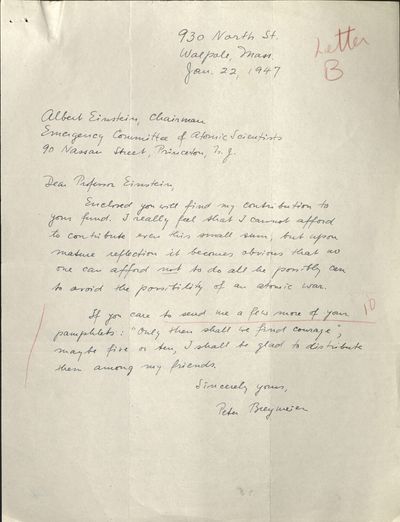 930 North St.
Walpole, Mass.
Jan. 22, 1947
Letter
B
Albert Einstein, Chairman
Emergency Committee of Atomic Scientists
90 Nassau Street, Princeton, N.J.
Dear Professor Einstein,
Enclosed you will find my contribution to
your fund. I really feel that I cannot afford
to contribute even this small sum, but upon
mature reflection it becomes obvious that no
one can afford not to do all he possibly can
to avoid the possibility of an atomic war.
If you care to send me a few more of your
10
pamphlets: "Only then shall we find courage",
maybe five or ten, I shall be glad to distribute
them among my friends.
Sincerely yours,
Peter